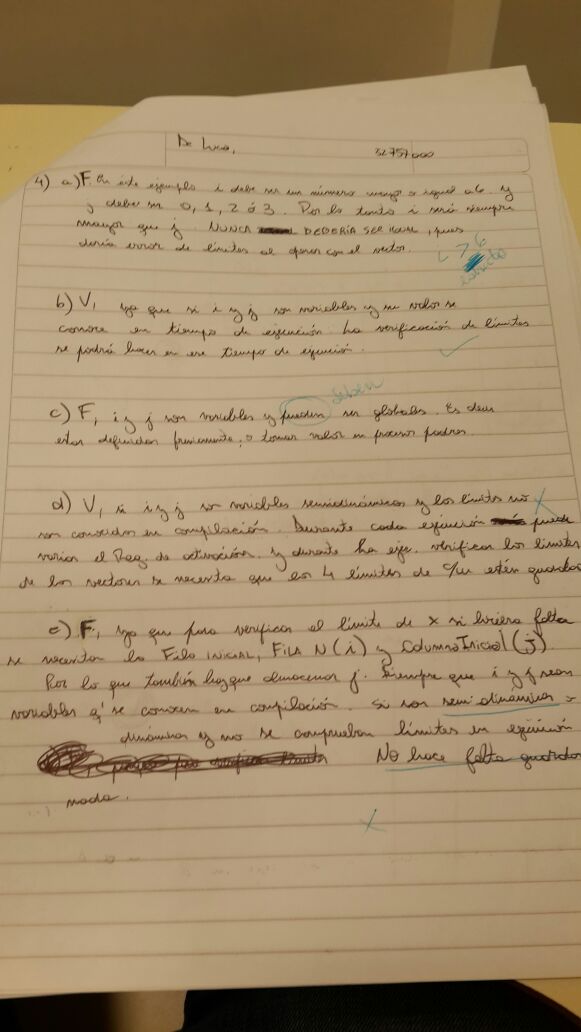 De Luca, 32757000
4) a) F. En éste ejemplo i debe ser un número mayor o igual a 6. y
j deber ser 0, 1, 2 ó 3. Por lo tanto i será siempre
mayor que j. NUNCA DEBERÍA SER IGUAL, pues
daría error de límites al operar con el vector.
b) V, ya que si i y j son variables y su valor se
conoce en tiempo de ejecución. La verificación de límites
se podrá hacer en ese tiempo de ejecución.
deben
c) F, i y j son variables y pueden ser globales. Es decir
estar definidas previamente, o tomar valor en procesos padres.
d) V, si i y j son variables semidinámicas y los límites no
son conocidos en compilación. Durante cada ejecución puede
variar el Reg. de activación. y durante la eje. verificar los límites
de los vectores se necesita que los 4 límites de c/u estén guardados
e) F, ya que para verificar el límite de x si hiciera falta
se necesitan la FILA INICIAL, FILA N (i) y Columna Inicial (j)
Por lo que también hay que almacenar j. Siempre que i y j sean
variables q' se conocen en compilación. Si son semidinámicas o
dinámicas y no se comprueban límites en ejecución
No hace falta guardar
nada.